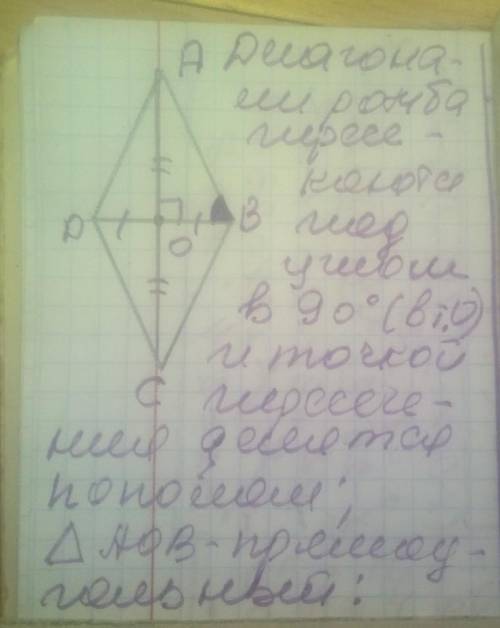 A Диагона-
ли ромба
пересе-
каются
D B под
O углом
в 90° (в т.О)
и точкой
C пересече-
ния делятся
пополам;
△ AOB - прямоу-
гольный: